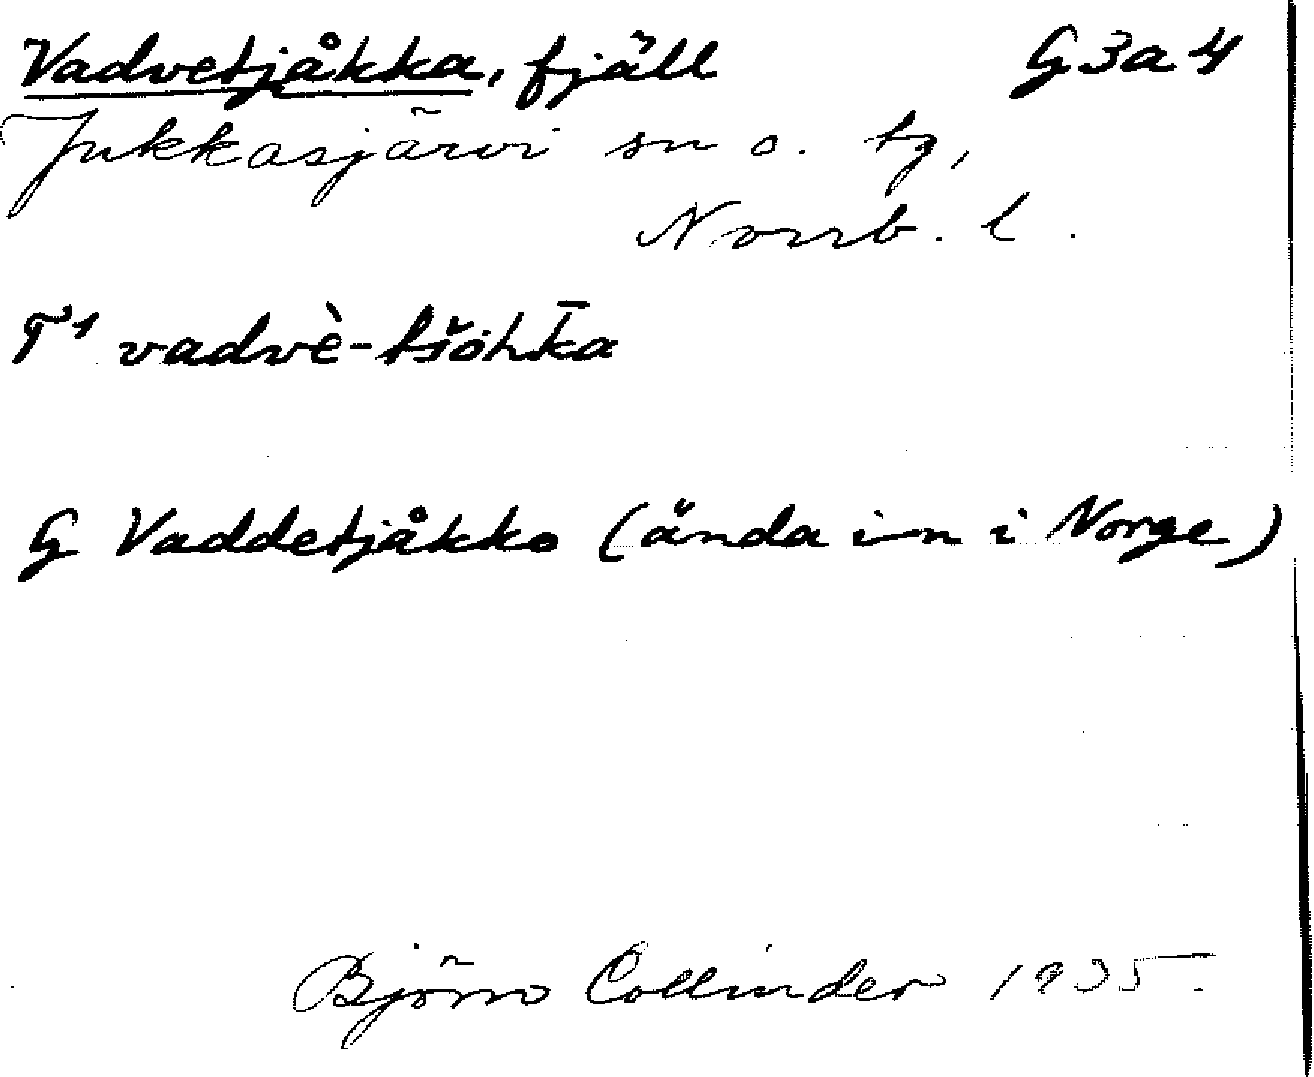 Vadvetjåkka, fjäll G3a4
Jukkasjärvi sn o. tg,
Norrb. l.
T¹ vadvè-tšoh̄k̄a
G Vaddetjåkko (ända in i Norge)
Björn Collinder 1935.